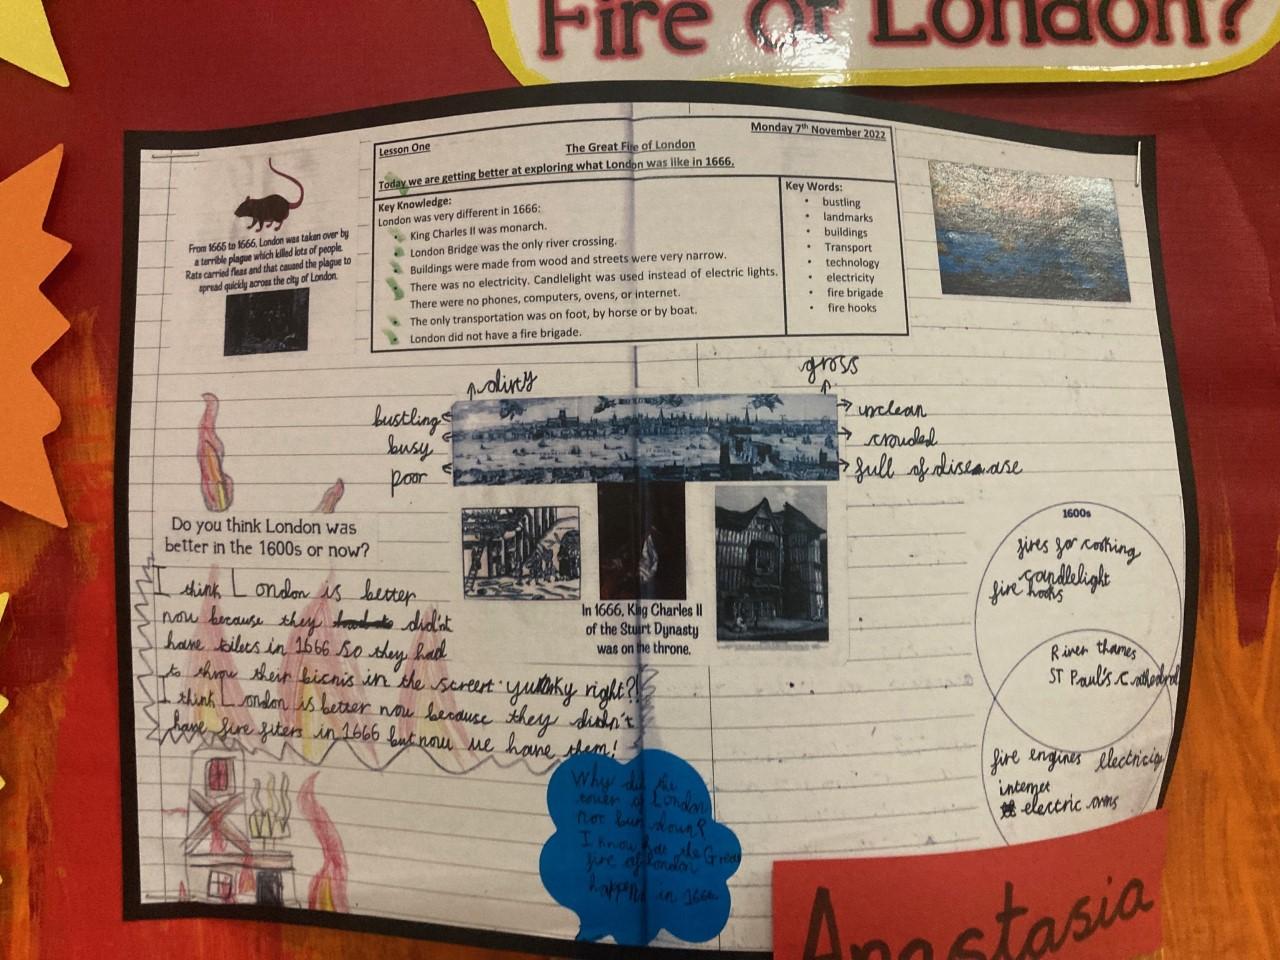 Fire of London?
Lesson One
The Great Fire of London
Monday 7th November 2022
Today we are getting better at exploring what London was like in 1666.
Key Knowledge:
London was very different in 1666:
• King Charles II was monarch.
• London Bridge was the only river crossing.
• Buildings were made from wood and streets were very narrow.
• There was no electricity. Candlelight was used instead of electric lights.
There were no phones, computers, ovens, or internet.
• The only transportation was on foot, by horse or by boat.
• London did not have a fire brigade.
Key Words:
• bustling
• landmarks
• buildings
• Transport
• technology
• electricity
• fire brigade
• fire hooks
From 1665 to 1666, London was taken over by
a terrible plague which killed lots of people.
Rats carried fleas and that caused the plague to
spread quickly across the city of London.
dirty
gross
bustling
busy
poor
unclean
crouded
full of disease
In 1666, King Charles II
of the Stuart Dynasty
was on the throne.
Do you think London was
better in the 1600s or now?
I think London is better
now because they didn't
have tilets in 1666 So they had
to throw their bicnis in the screert yuky right?!
I think London is better now because they didn't
have fire fiters in 1666 but now we have them!
Why did the
tower of London
not burn down?
I know that the Great
fire of London
happend in 1666
1600s
fires for cooking
candlelight
fire hooks
River thames
ST Paul's cathedral
fire engines electricity
internet
electric
Anastasia